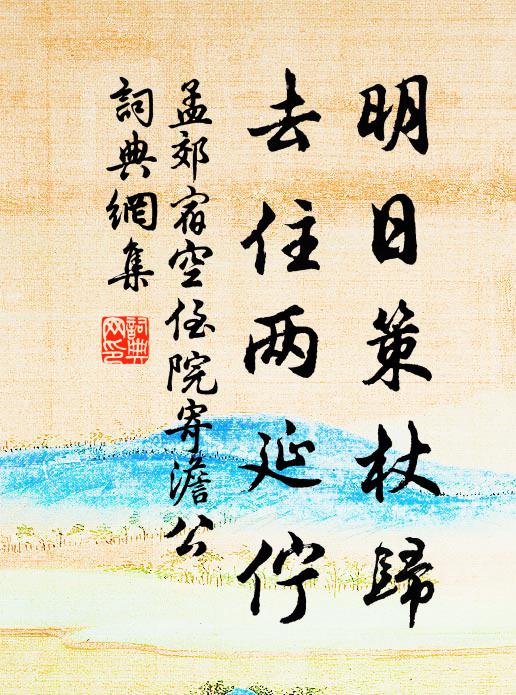 明日策杖歸
去住两延佇
孟郊宿空侄院寄澹公
詞典網集
詞典网印